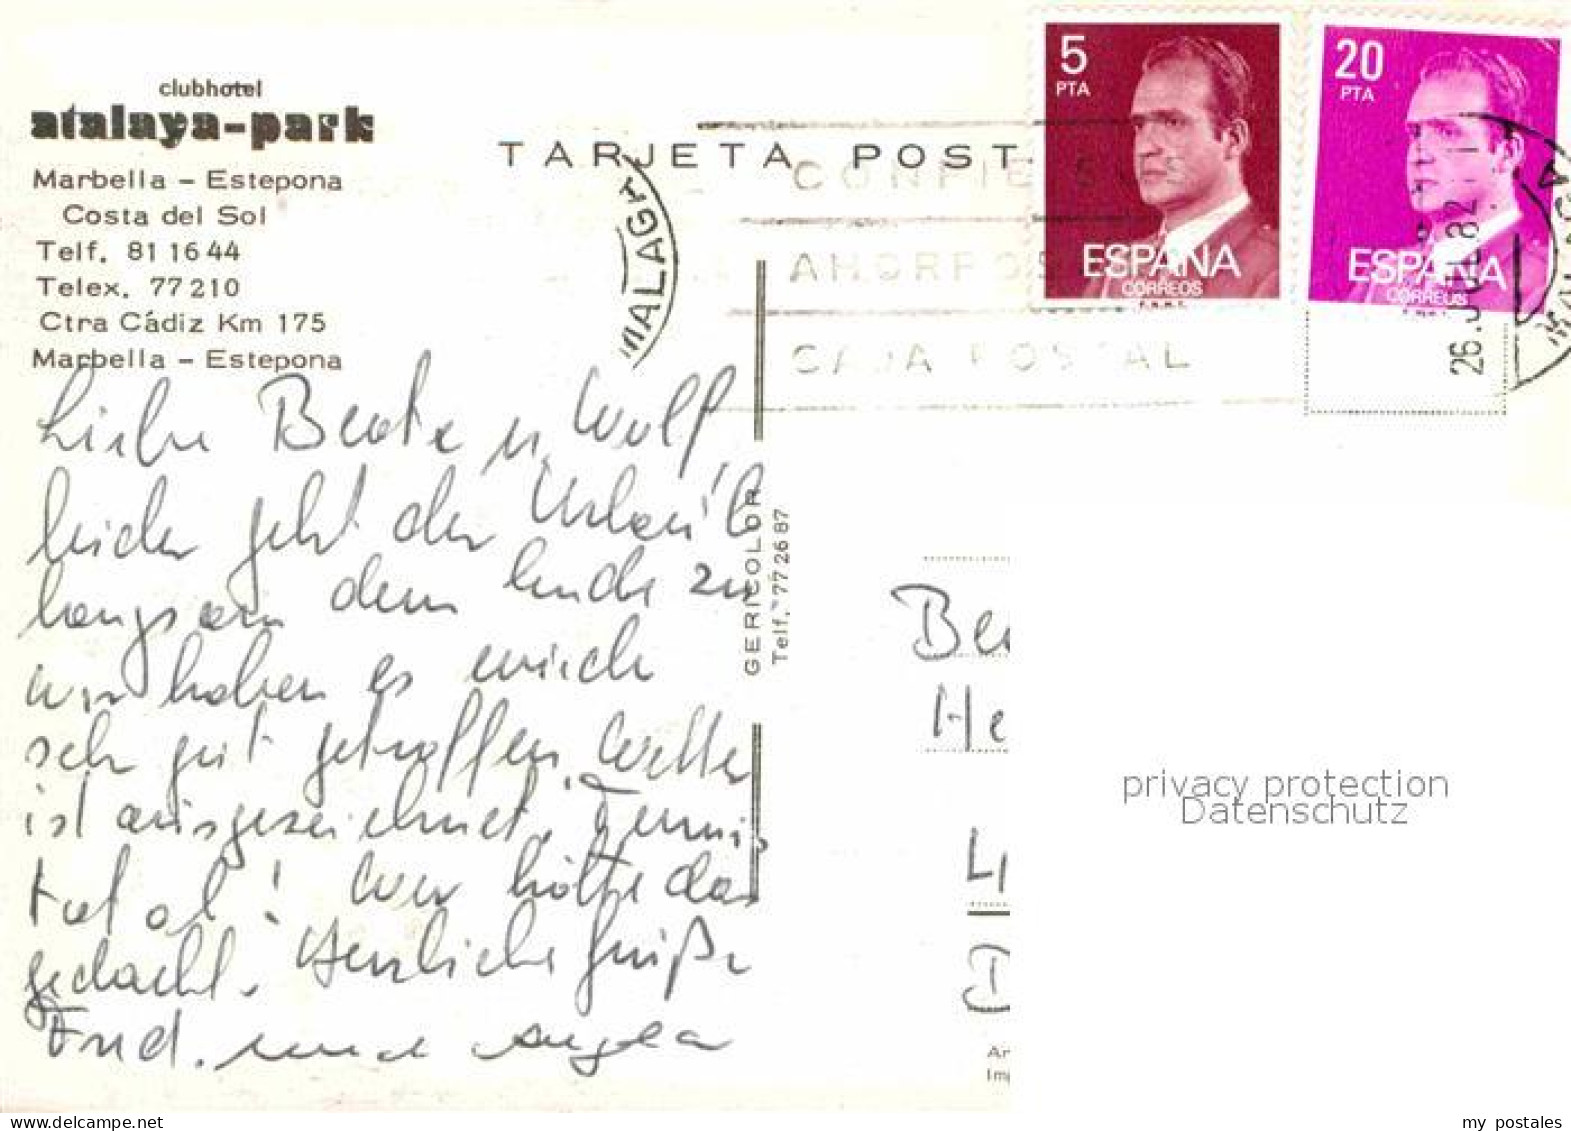 clubhotel
atalaya-park
Marbella - Estepona
Costa del Sol
Telf. 81 16 44
Telex. 77 210
Ctra Cádiz Km 175
Marbella - Estepona
TARJETA POST
5
PTA
ESPAÑA
CORREOS
F.N.M.T.
20
PTA
ESPAÑA
CORREOS
F.N.M.T.
MALAGA
AHORROS
CAJA POSTAL
26.JUL.82
MALAGA
Liebe Beate u. Wolf,
leider geht der Urlaub
langsam dem Ende zu
wir haben es
sehr gut getroffen. Wetter
ist ausgezeichnet. Tennis
total! Wer hätte das
gedacht. Herzliche Grüße
und Angela
GERICOLOR
Telf. 77 26 87
Be
He
4
D
Ar
Imp
privacy protection
Datenschutz
my postales
https://www.ansichtskarten-center.de/